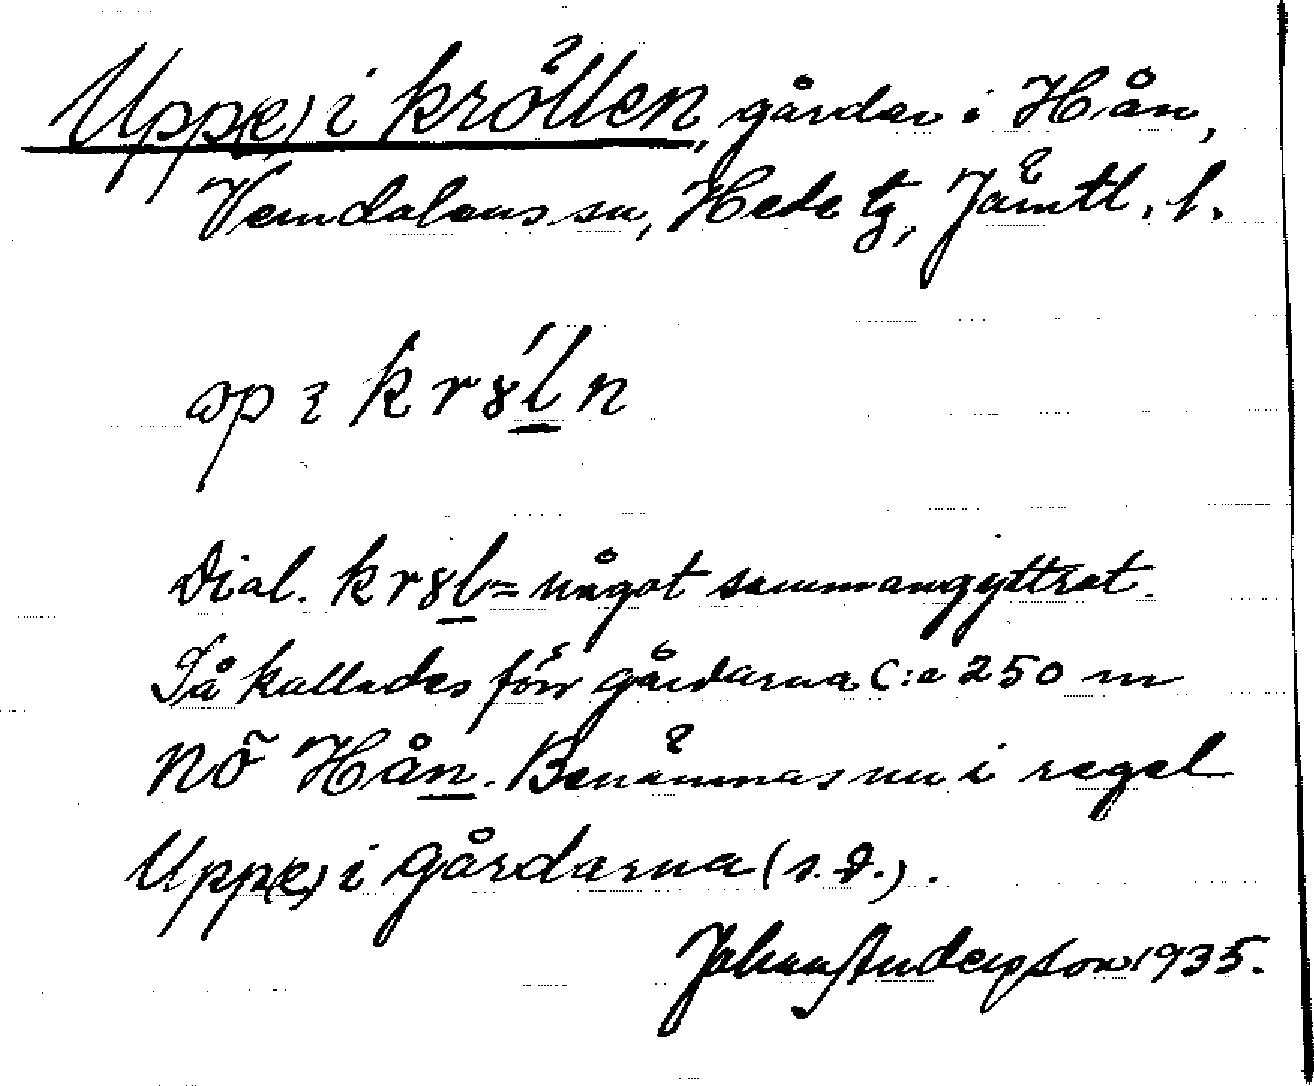 Upp(e) i kröllen, gårdar i Hån,
Vemdalens sn, Hede tg, Jämtl. l.
Dial. kr8l = något sammangyttrat.
Så kallades förr gårdarna C:a 250 m
nö Hån. Benämnas nu i regel
Upp(e) i gårdarna (s.d.).
Johan Andersson 1935.